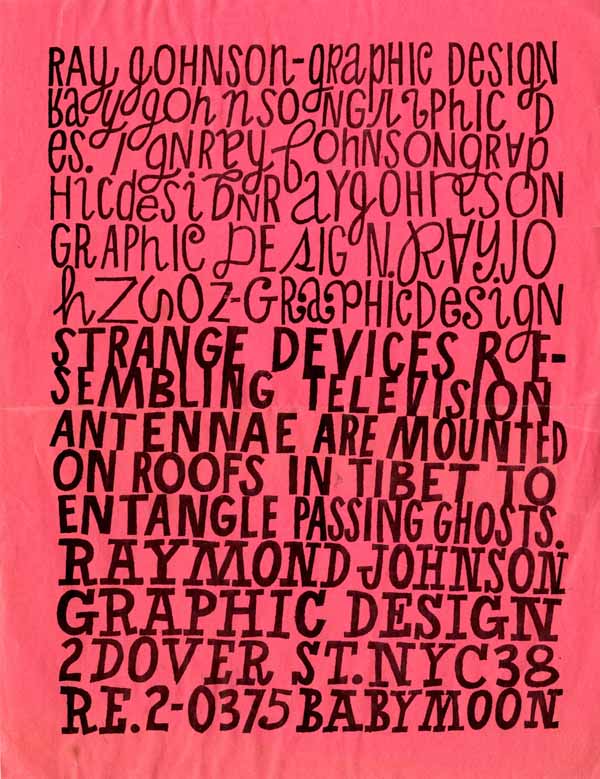 RAy JOHNSON-gRaphIC DESIGN
RayJohnSONGRaphIC D
es.IgNRayJOhNSONgRap
HicdesigNRAYJOHNSON
GRAPhIC DESIGN.RAYJO
hNSON-GRaaPHicDesigN
STRANGE DEVICES RE-
SEMBLING TELEVISION
ANTENNAE ARE MOUNTED
ON ROOFS IN TIBET TO
ENTANGLE PASSING GHOSTS.
RAYMOND JOHNSON
GRAPHIC DESIGN
2 DOVER ST. NYC 38
RE. 2-0375 BABYMOON